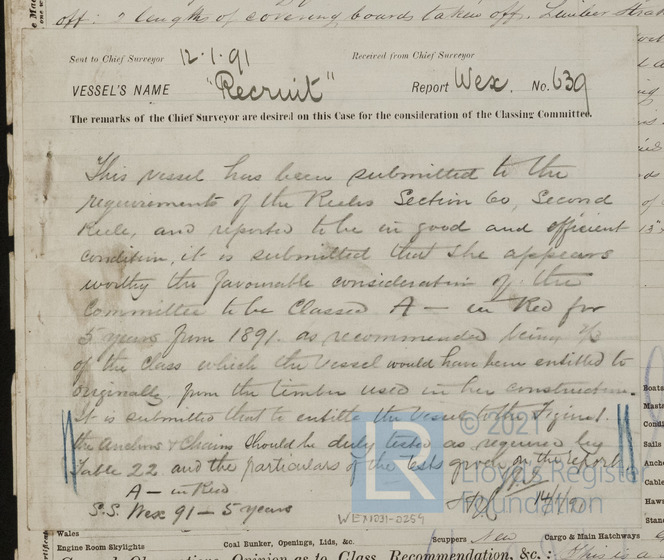 off: 2 lengths of covering boards taken off. Limber Strak
Sent to Chief Surveyor 12.1.91 Received from Chief Surveyor
VESSEL'S NAME "Recruit" Report Wex. No. 639
The remarks of the Chief Surveyor are desired on this Case for the consideration of the Classing Committee.
This vessel has been submitted to the
requirements of the Rules Section 60, Second
Rule, and reported to be in good and efficient
condition, it is submitted that she appears
worthy the favourable consideration of the
Committee to be Classed A — in Red for
5 years from 1891. as recommended being 2/3
of the class which the vessel would have been entitled to
originally, from the timber used in her construction.
It is submitted that to entitle the vessel to the Figure 1.
the Anchors & Chains should be duly tested as required by
Table 22 and the particulars of the tests given in the report.
A — in Red
S.S. Wex 91 — 5 years
© 2021
LR
Lloyd's Register
Foundation
WEM031-0259
Wales
Engine Room Skylights
Coal Bunker, Openings, Lids, &c.
Scuppers New
Cargo & Main Hatchways
Opinion as to Class, Recommendation, &c.:
Boats
Masts
Condi
Sails
Anch
Cable
Haws
Stan